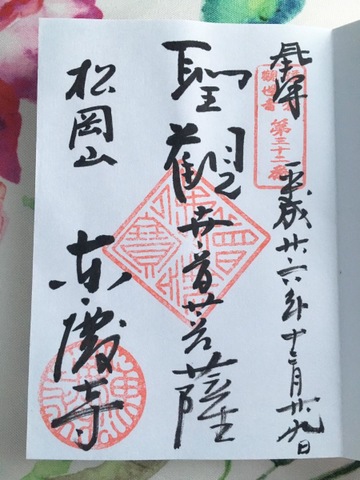 奉拝
觀世音
第三十二番
平成廿六年十二月廿九日
聖觀世音菩薩
松岡山
東慶寺